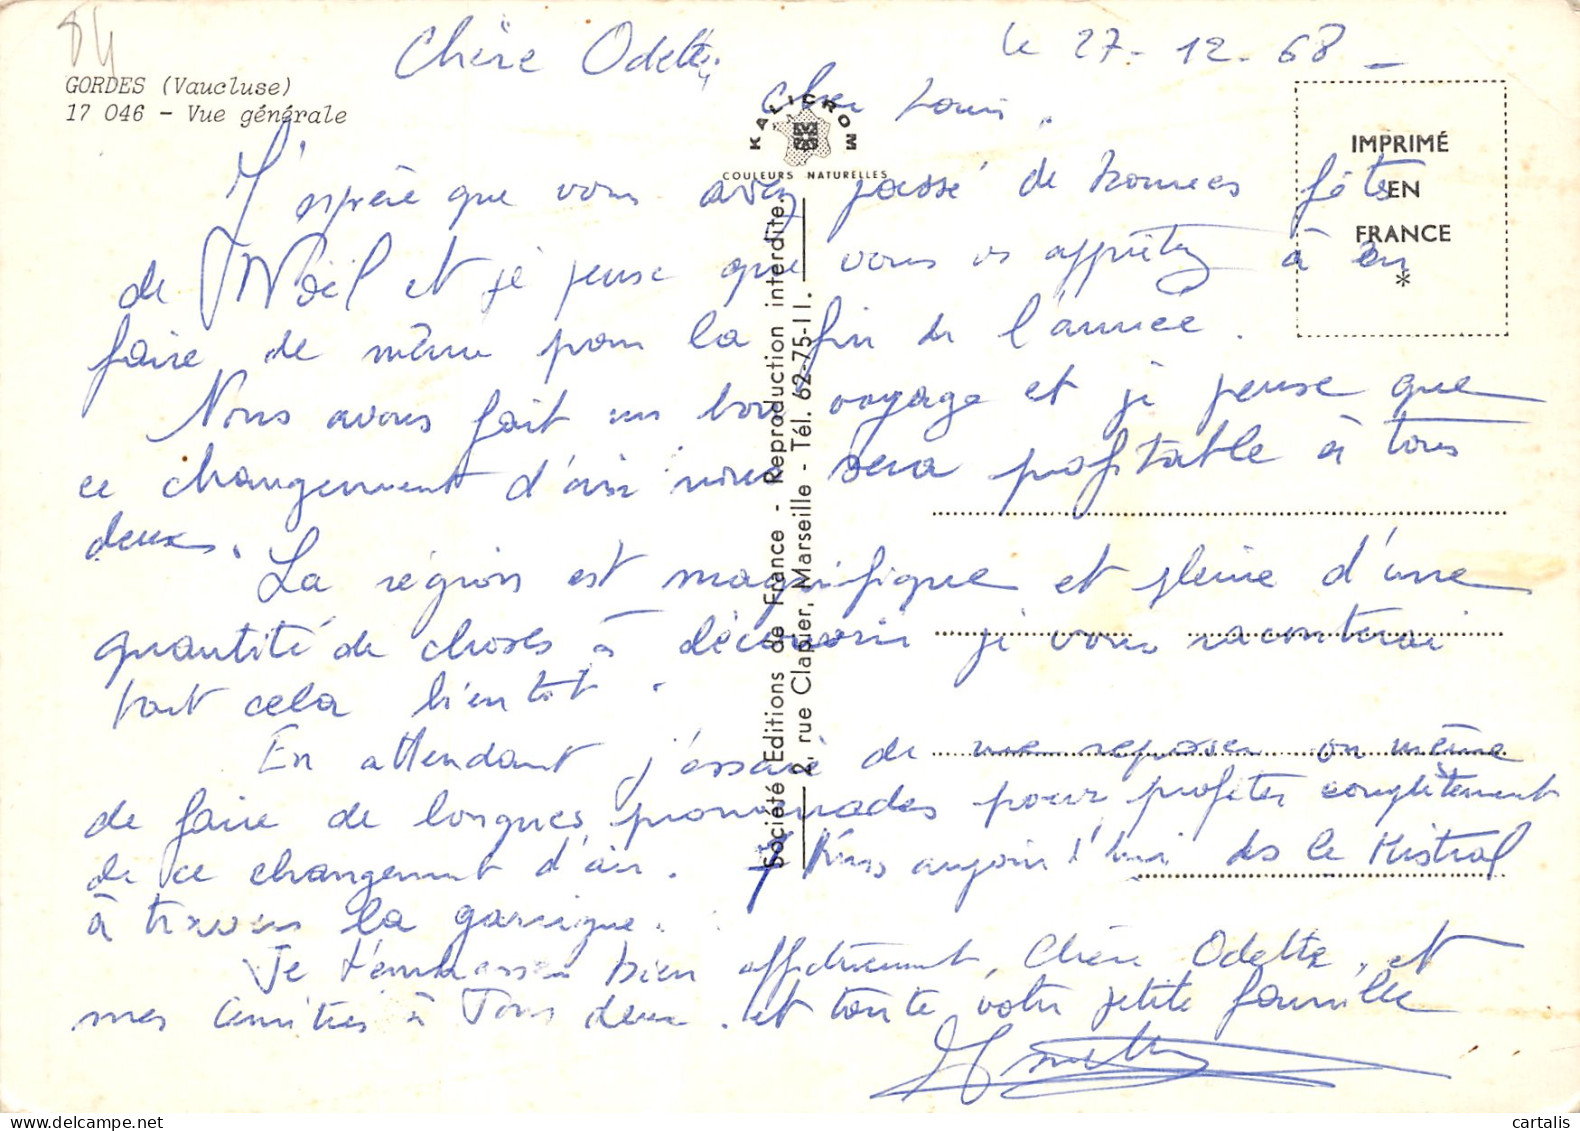 84
GORDES (Vaucluse)
17 046 - Vue générale
le 27-12-68_
Chère Odette,
cher Louis.
KALICROM
COULEURS NATURELLES
IMPRIMÉ
EN
FRANCE
*
Société Editions de France - Reproduction interdite.
2, rue Clapier, Marseille - Tél. 62-75-11.
J'espère que vous avez passé de bonnes fêtes
de Noël et je pense que vous vs apprêtez à en
faire de même pour la fin de l'année.
Nous avons fait un bon voyage et je pense que
ce changement d'air nous sera profitable à tous
deux.
La région est magnifique et pleine d'une
quantité de choses à découvrir je vous raconterai
tout cela bientôt.
En attendant j'essaie de me reposer ou même
de faire de longues promenades pour profiter complètement
de ce changement d'air. aujour d'hui ds le Mistral
à travers la garrigue.
Je t'embrasse bien affectueusement, Chère Odette, et
mes amitiés à Tous deux. et toute votre petite famille